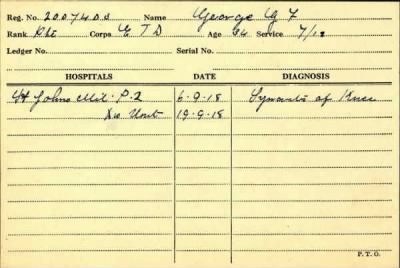 Reg. No. 2007403 Name George G F
Rank Pte Corps E T D Age 34 Service 7/12
Ledger No. Serial No.
HOSPITALS DATE DIAGNOSIS
St Johns Mil. P.2 6-9-18 Synovitis of Knee
Dis. Unit 19-9-18
P. T. O.